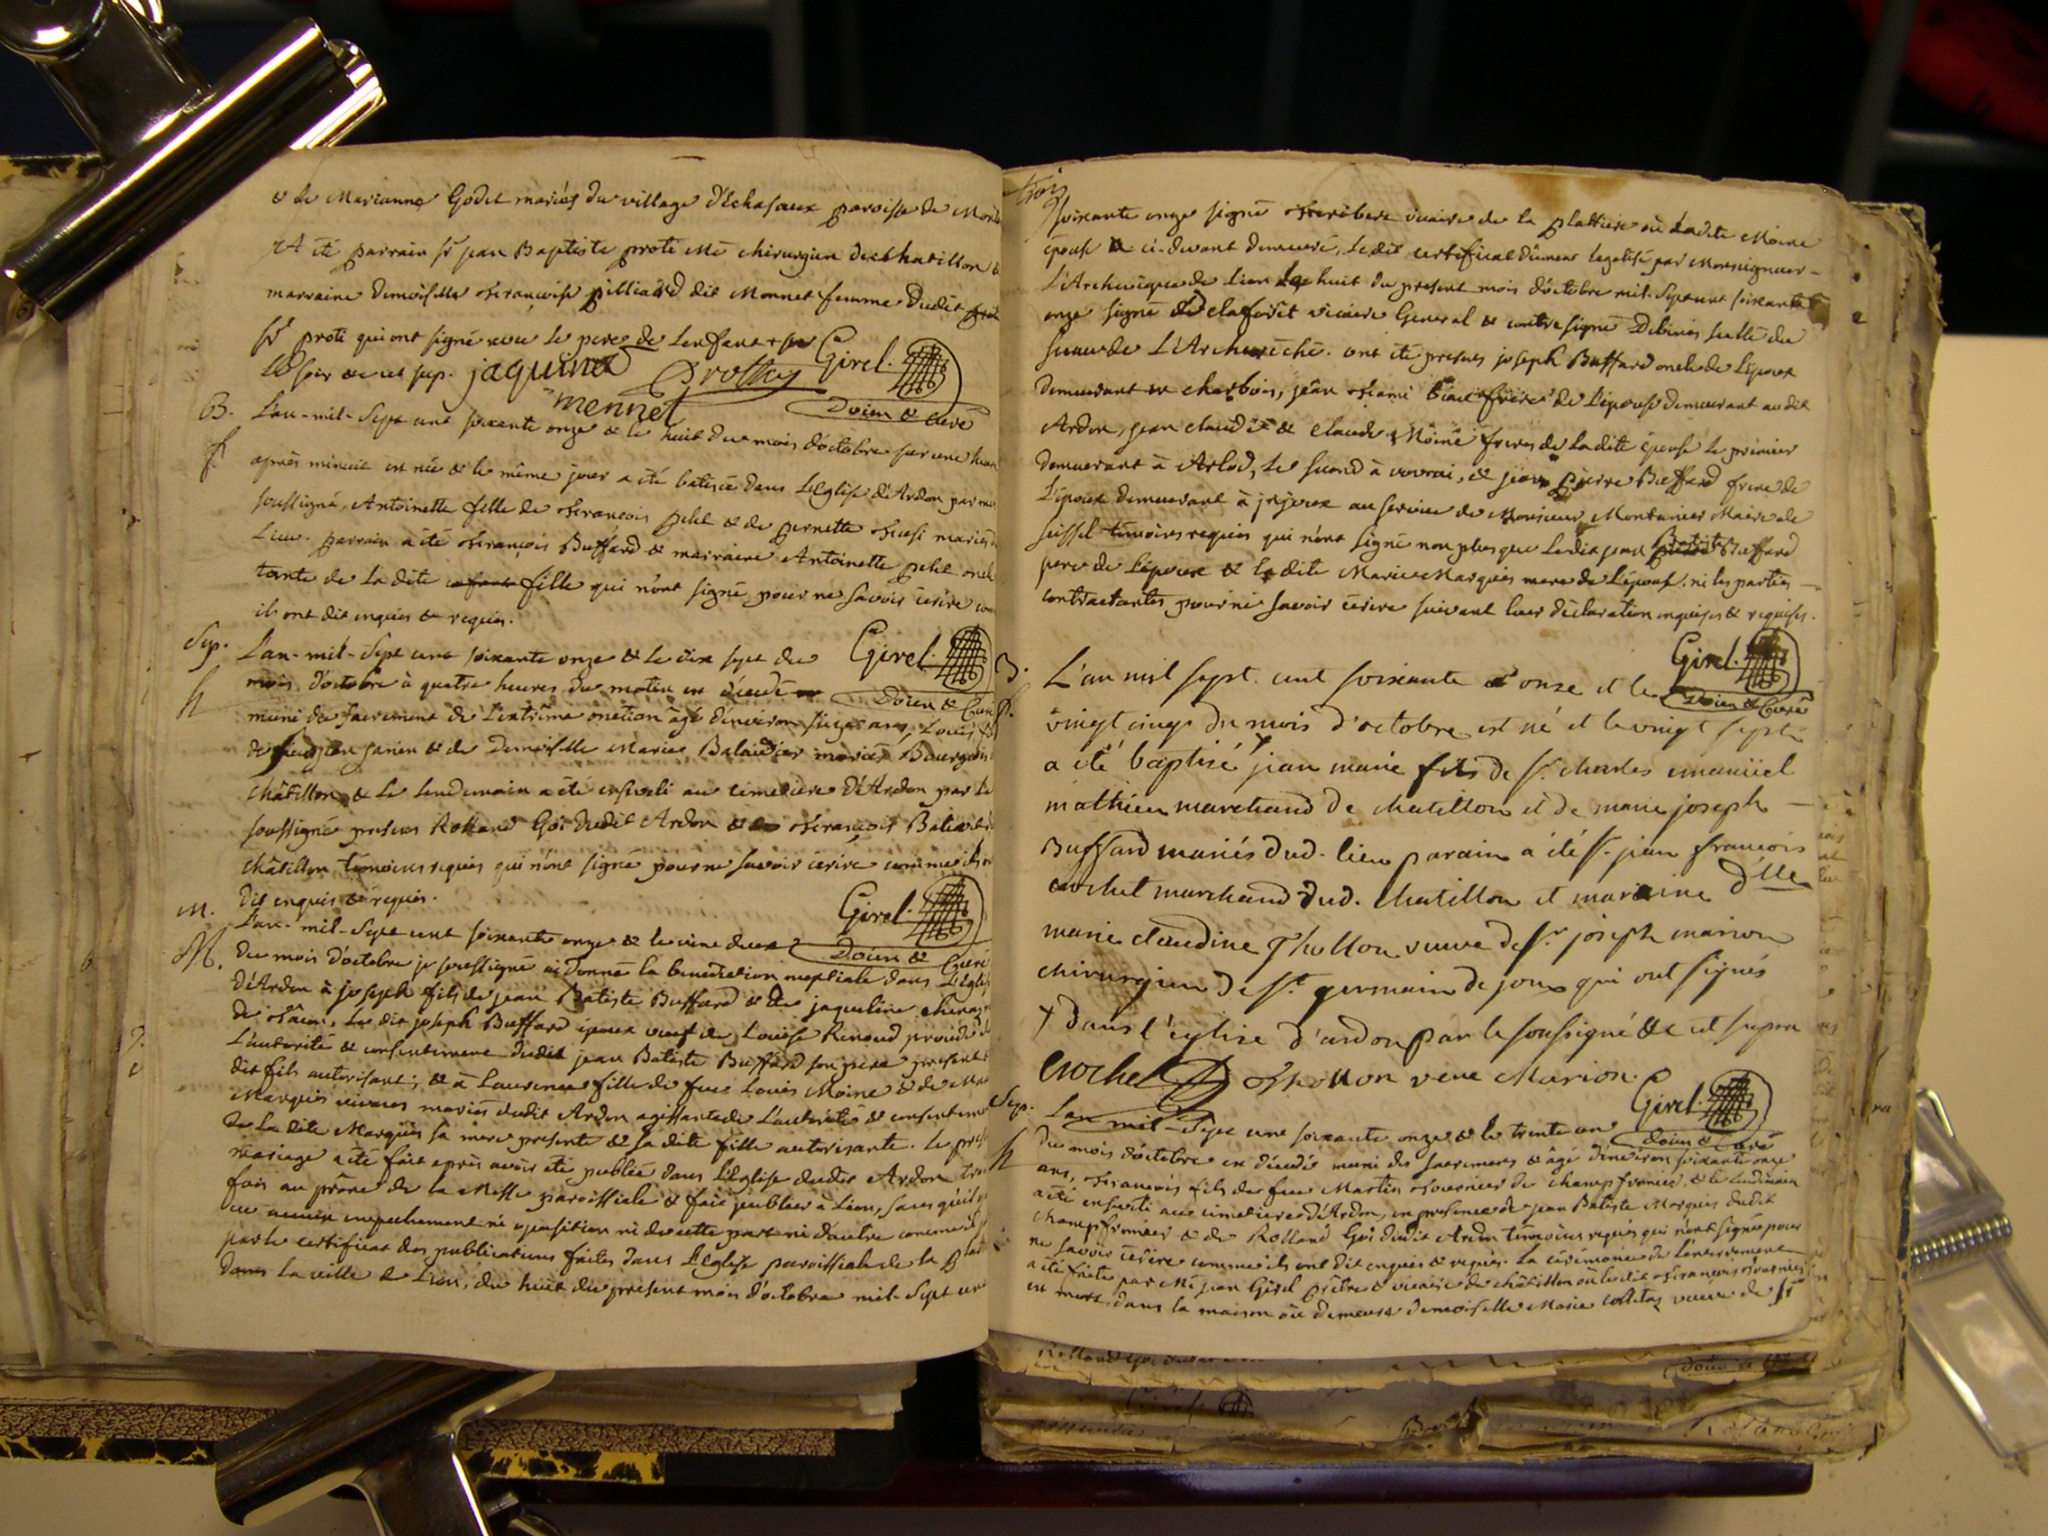 & de Marianne Godet mariés du village d'Echasaux paroisse de
A été parrain Sr jean Baptiste proti Me chirurgien de Chatillon &
marraine Demoiselle francoise pilliard dit Monnet femme dudit
Sr proti qui ont signé avec le pere de lenfant
jaquine Girel.
mennet Doien & Curé
B. L'an-mil-sept cent soixante onze & le huit du mois d'octobre sur une heure
f. après minuit est née & le même jour a été batisée dans L'Eglise d'Ardon par moi
soussigné, Antoinette fille de francois petit & de pernette mariés
Lieu. parrain a été francois Buffard & marraine Antoinette petit oncle
tante de la dite fille qui n'ont signé pour ne savoir écrire
ils ont dit enquis & requis.
Girel.
Sep. L'an-mil-sept cent soixante onze & le dix sept du
mois d'octobre à quatre heures du matin est décédé Doien & Curé
muni du sacrement de L'extrême onction âgé d'environ seize ans, Louis
de & de Demoiselle Marie Balaudier mariés Bourgeois
châtillon & le lendemain a été enseveli au cimetiere d'Ardon par le
soussigné presens Rolland Goi dudit Ardon & francois
châtillon témoins requis qui n'ont signé pour ne savoir écrire comme ils
dit enquis & requis.
Girel.
m. L'an-mil-sept cent soixante onze & le
Doien & Curé
M. du mois d'octobre je soussigné ai donné la benediction nuptiale dans L'Eglise
d'Ardon à joseph fils de jean Batiste Buffard & de jaqueline
Le dit joseph Buffard époux veuf de Louise Renaud procède de
L'autorité & consentement dudit jean Batiste Buffard son pere present
dit fils autorisant; & à Laurence fille de feu Louis Moine & de
Marquis mariés dudit Ardon agissante de L'autorité & consentement
de La dite Marquis sa mere presente & sa dite fille autorisante. Le present
mariage a été fait après avoir été publié dans L'Eglise dudit Ardon trois
fois au prône de la Messe paroissiale & fait publier à Lion, sans qu'il
empechement ni oposition ni de cette part ni d'autre comme il
par le certificat des publications faites dans L'Eglise paroissiale de la
La ville de Lion, du huit du present mois d'octobre mil-sept cent
soixante onze signé vicaire de la plattiere où Ladite Moine
épouse a ci-devant demeuré, Le dit certificat dûment legalisé par Monseigneur
L'Archevêque de Lion Le huit du present mois d'octobre mil-sept cent soixante
onze signé Delaforêt vicaire General & contresigné scellé du
sceau de L'Archevêché. ont été presens joseph Buffard oncle de L'époux
demeurant, jean beau frere de L'épouse demeurant audit
Ardon, jean claude & claude Moine freres de La dite épouse le premier
demeurant à Arlod, Le second à vouvrai, & jean pierre Buffard frere de
L'époux demeurant à au service de Monsieur Montanier Maire de
seissel témoins requis qui n'ont signé non plus que Ledit jean Batiste Buffard
pere de L'époux & la dite Marie Marquis mere de L'épouse, ni les parties
contractantes pour ne savoir écrire suivant leur déclaration enquises & requises.
Girel.
Doien & Curé
B. L'an mil sept. cent soixante & onze et le
vingt cinq du mois d'octobre est né et le vingt sept
a été baptisé + jean marie fils de sr. charles emanuel
mathieu marchand de chatillon et de marie joseph
Buffard mariés dud. lieu parain a été sr. jean francois
crochet marchand dud. Chatillon et maraine dlle
marie claudine Thollon veuve de sr joseph marion
chirurgien de st germain de joux qui ont signés
+ dans l'eglise d'ardon par le soussigné & et supra
Crochet Thollon veve Marion.
Girel.
Doien & Curé
Sep. L'an-mil-sept cent soixante onze & le trente un
du mois d'octobre est décédé muni des sacremens & âgé d'environ soixante onze
ans, francois fils de feu Martin fournier de champfromier, & le lendemain
a été enseveli au cimetiere d'Ardon, en presence de jean Batiste Marquis dudit
champfromier & de Rolland Goi dudit Ardon témoins requis qui n'ont signé pour
ne savoir écrire comme ils ont dit enquis & requis. La cérémonie de L'enterrement
a été faite par Me jean Girel prêtre & vicaire de châtillon où ledit francois fournier
est mort, dans la maison où demeure demoiselle Marie veuve de Sr